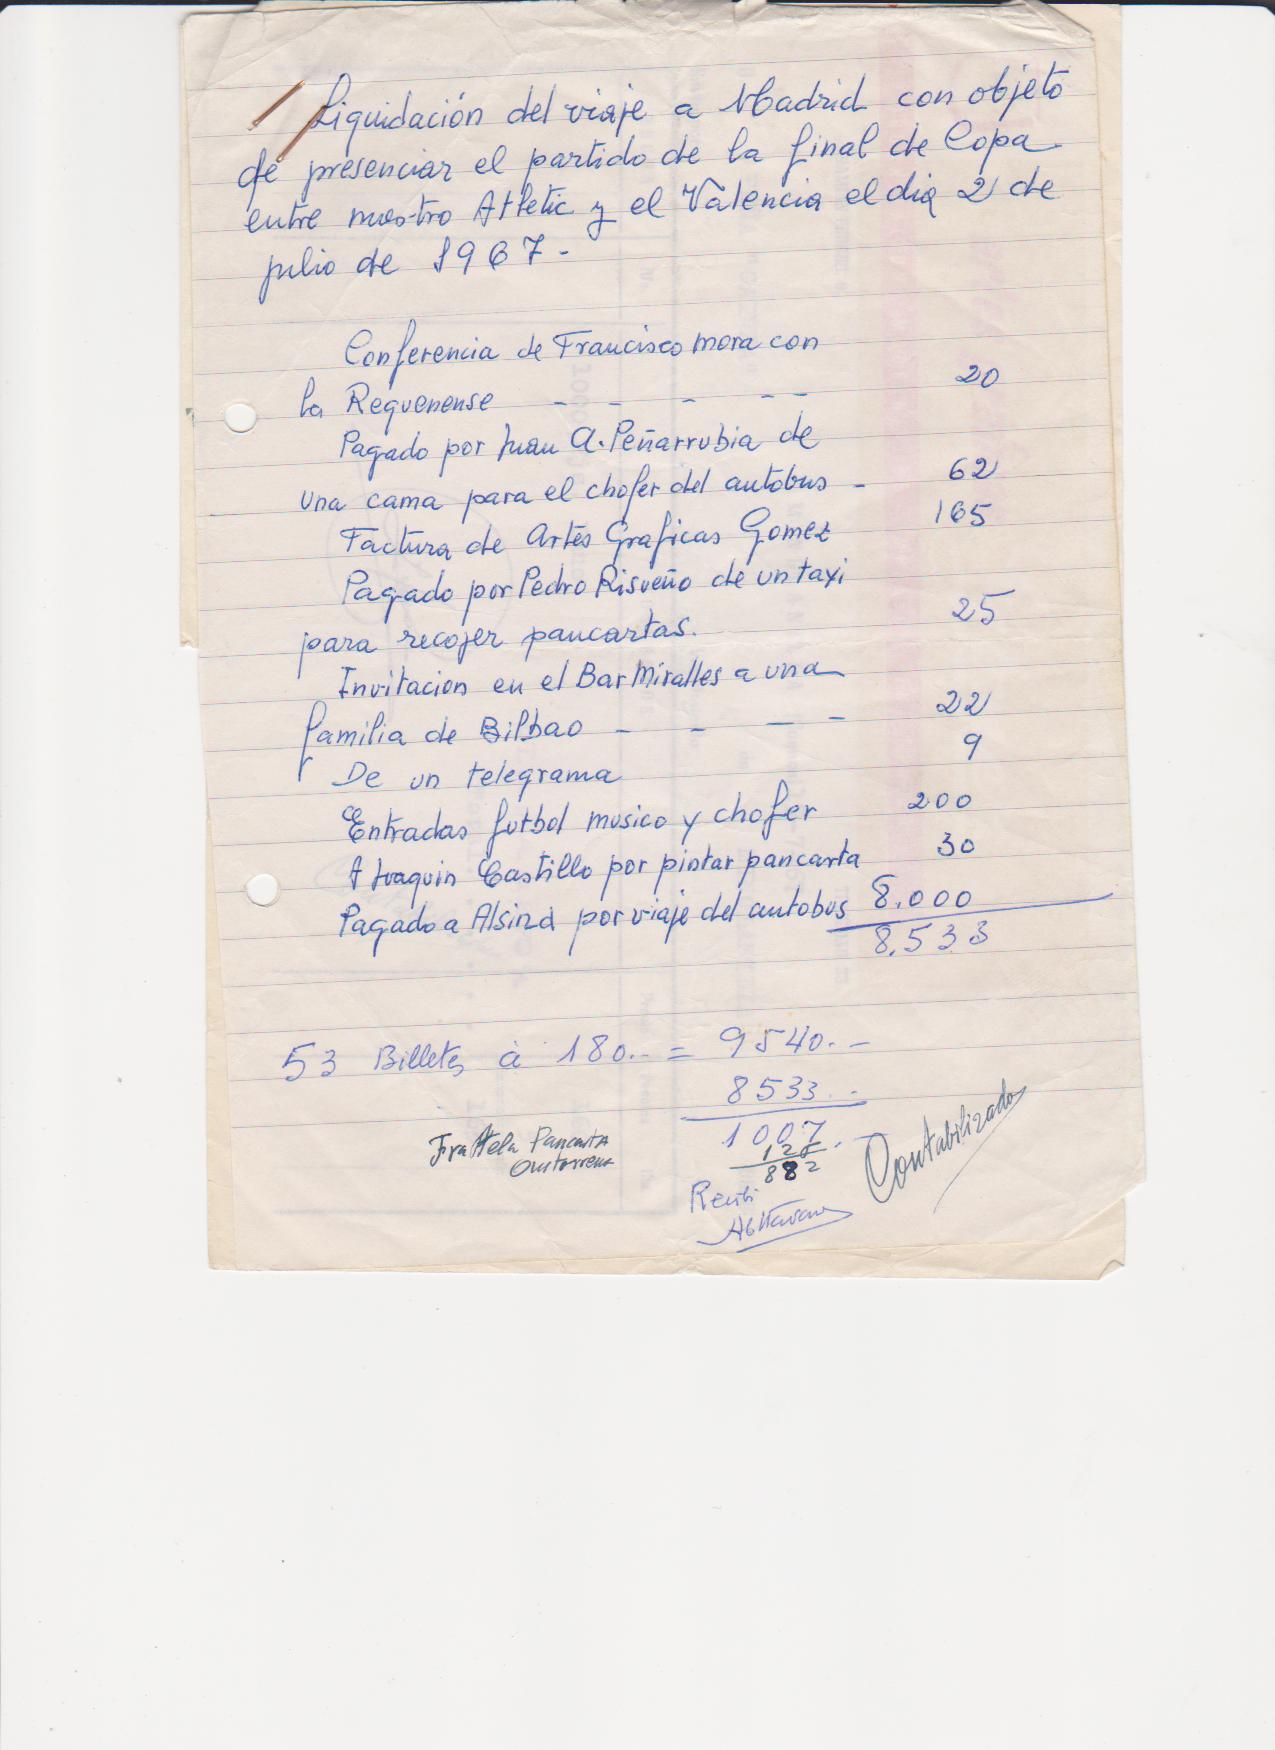 Liquidación del viaje a Madrid con objeto
de presenciar el partido de la final de Copa
entre nuestro Atletic y el Valencia el dia 2 de
julio de 1967-
Conferencia de Francisco Mora con
la Requenense - - - - - 20
Pagado por Juan A. Peñarrubia de
una cama para el chofer del autobus - 62
Factura de Artes Graficas Gomez 165
Pagado por Pedro Risueño de un taxi
para recojer pancartas. 25
Invitacion en el Bar Miralles a una
familia de Bilbao - - - - 22
De un telegrama 9
Entradas futbol musico y chofer 200
A Joaquin Castillo por pintar pancarta 30
Pagado a Alsina por viaje del autobus 8.000
8.533
53 Billetes à 180.- = 9540.-
8533.-
1007.-
125
882
Fra tela Pancarta
Contabilizado
Recibi